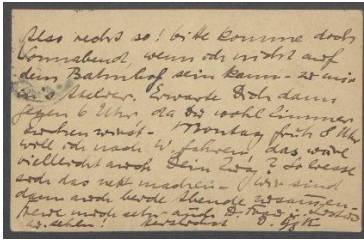 Also recht so! bitte komme doch
Sonnabend, wenn ich nicht auf
dem Bahnhof sein kann - zu mir
ins Atelier. Erwarte Dich dann
gegen 6 Uhr, da Du wohl immer
- Montag früh 8 Uhr
will ich nach W. fahren, das wäre
vielleicht auch Dein Zug? So
sich das nett machen. Wir sind
dann auch beide Abende zusammen -
freue mich sehr auch
zu sehen! herzlichst D.